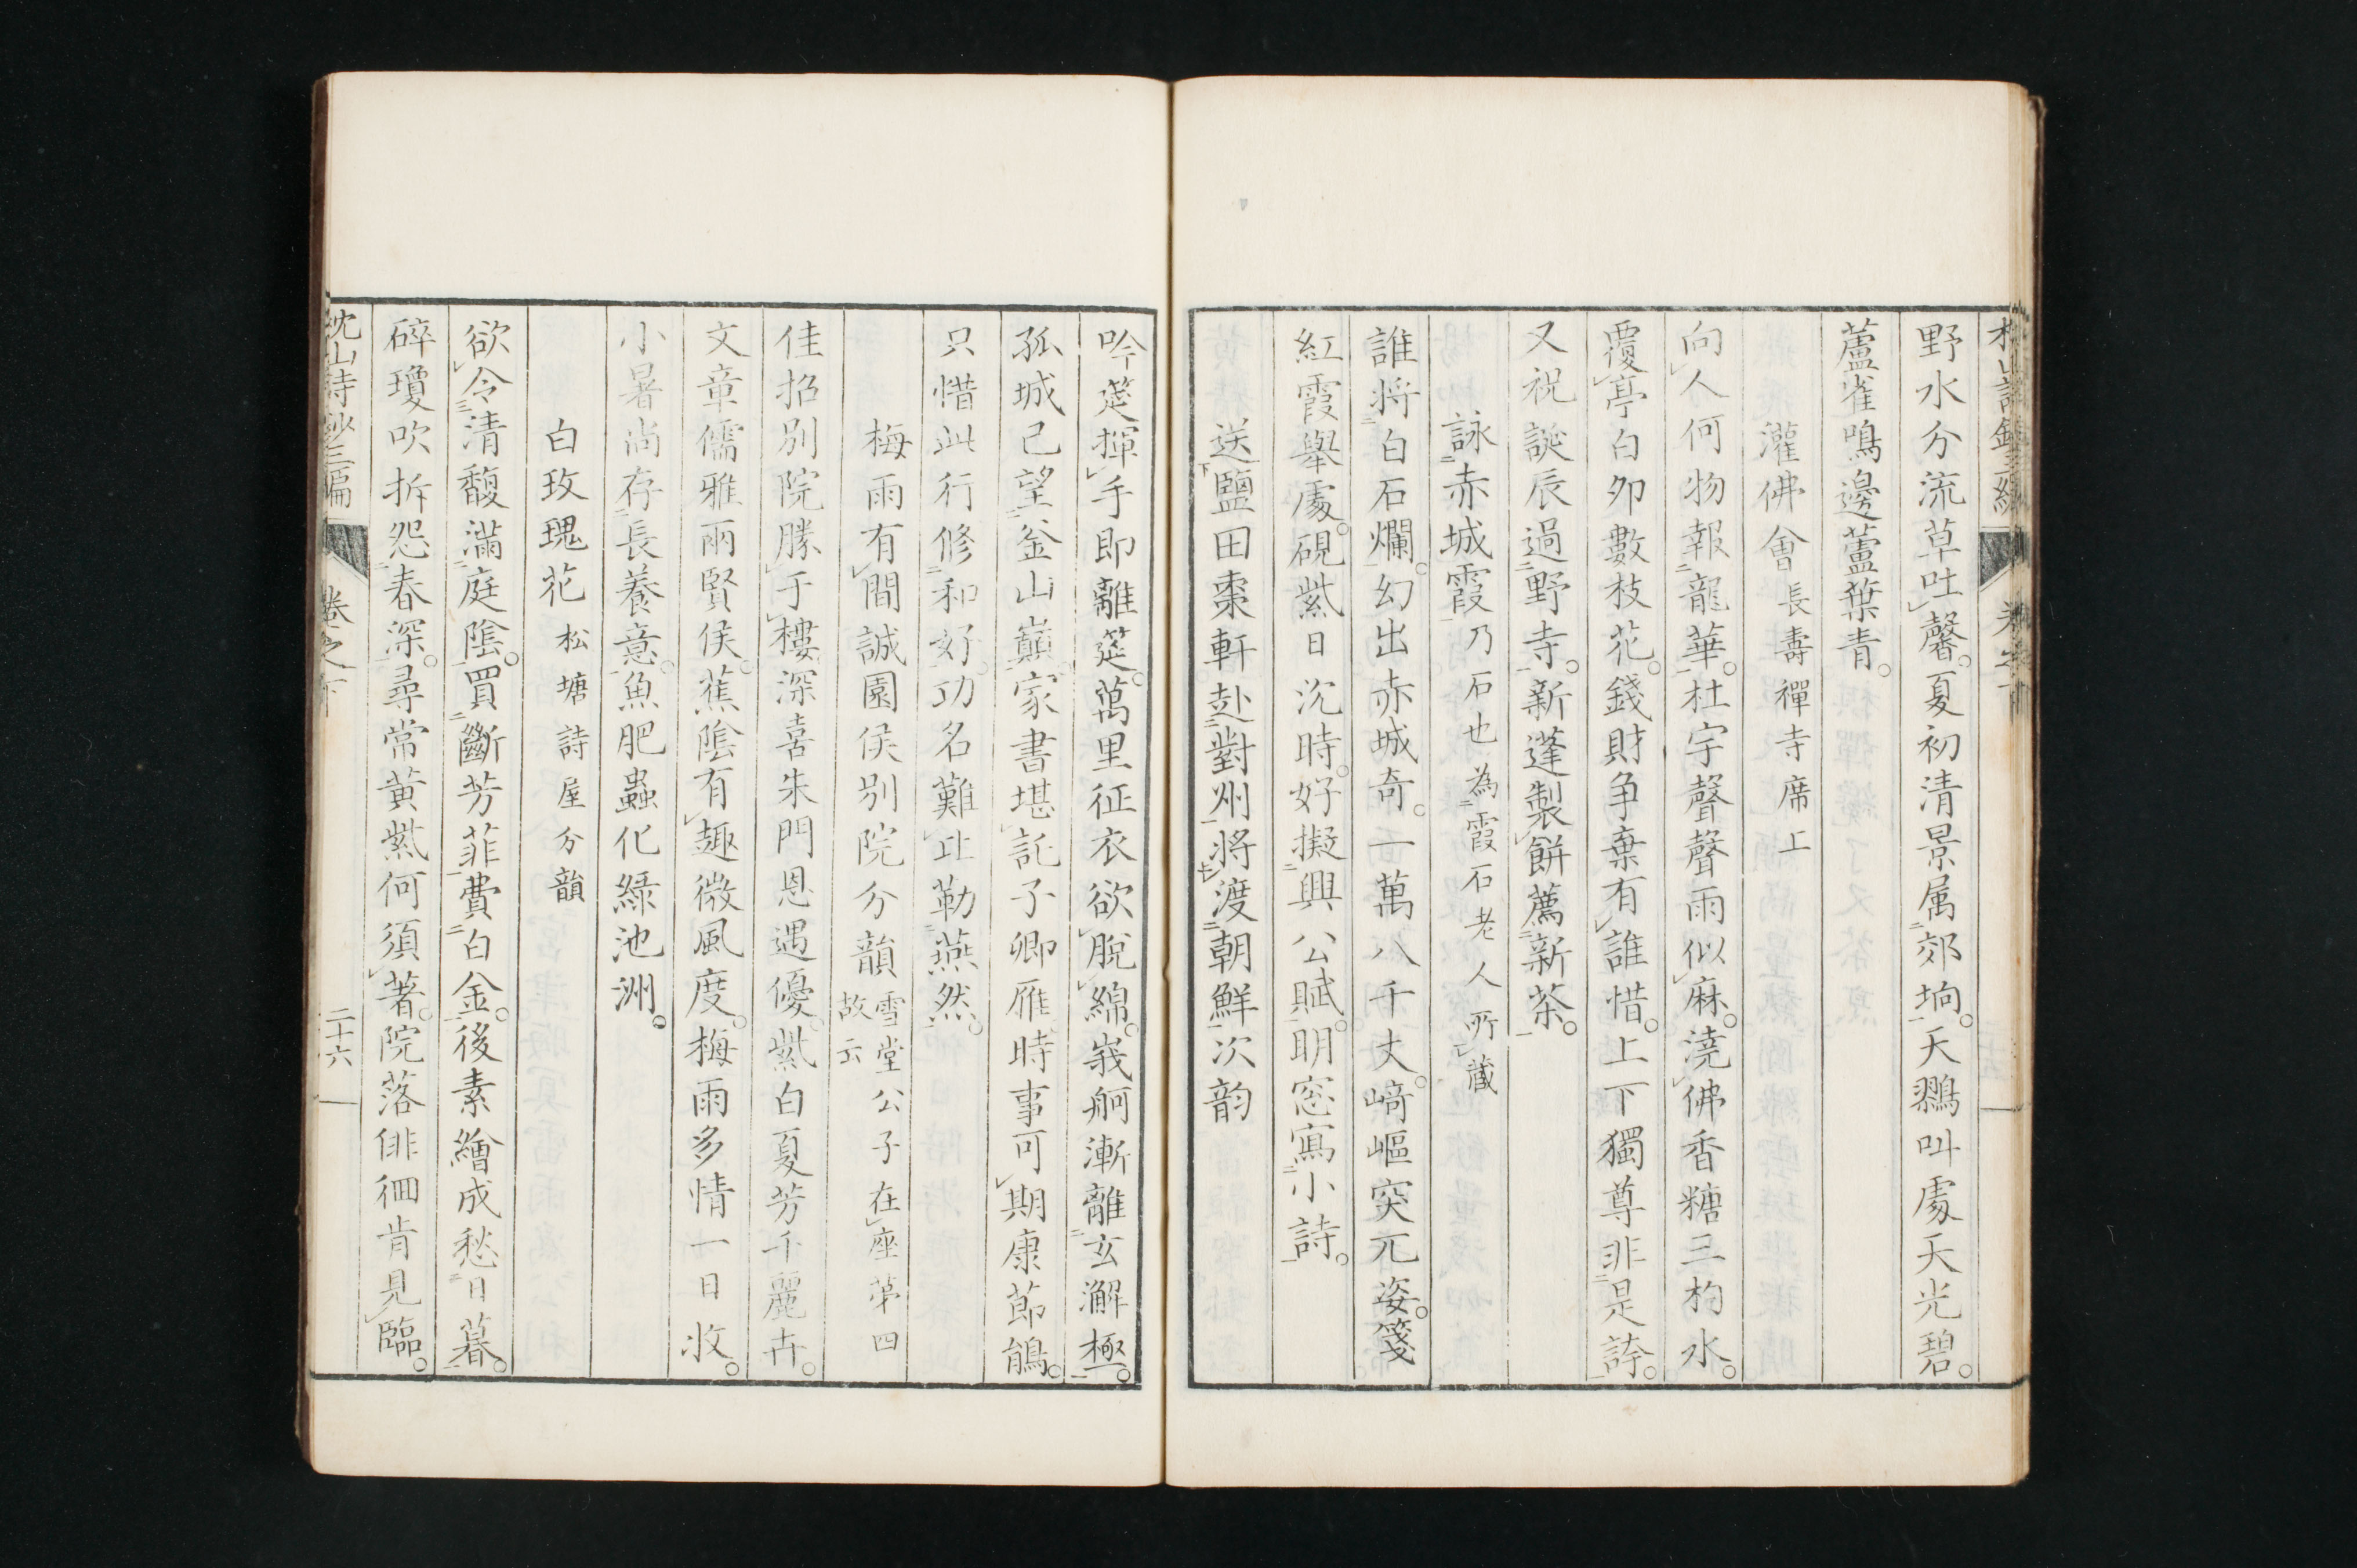 野水分流草吐馨。夏初清景属郊坰。天鵝叫處天光碧。
蘆雀鳴邊蘆葉青。
灌佛會長壽禪寺席上
向人何物報龍華。杜宇聲聲雨似麻。澆佛香糖三杓水。
覆亭白卯數枝花。錢財争棄有誰惜。上下獨尊非是誇。
又祝誕辰過野寺。新蓬製餅薦新茶。
詠赤城霞乃石也為霞石老人所蔵
誰将白石爛。幻出赤城奇。一萬八千丈。﨑嶇突兀姿。箋
紅霞舉處。硯紫日沈時。好擬興公賦。明窓寫小詩。
送鹽田棗軒赴對州将渡朝鮮次韵
吟筵揮手即離筵。萬里征衣欲脫綿。峩舸漸離玄澥極。
孤城已望釜山巔。家書堪託子卿雁。時事可期康莭鵑。
只惜此行修和好。功名難比勒燕然。
梅雨有間誠園侯別院分韻雪堂公子在座第四
故云
佳招別院勝于樓。深喜朱門恩遇優。紫白夏芳千麗卉。
文章儒雅兩賢侯。蕉陰有趣微風度。梅雨多情一日收。
小暑尚存長養意。魚肥蟲化綠池洲。
白玫瑰花松塘詩屋分韻
欲令清馥滿庭陰。買斷芳菲費白金。後素繪成愁日暮。
碎瓊吹拆怨春深。尋常黃紫何須著。院落俳徊肯見臨。
枕山詩鈔三編
卷之下
二十六